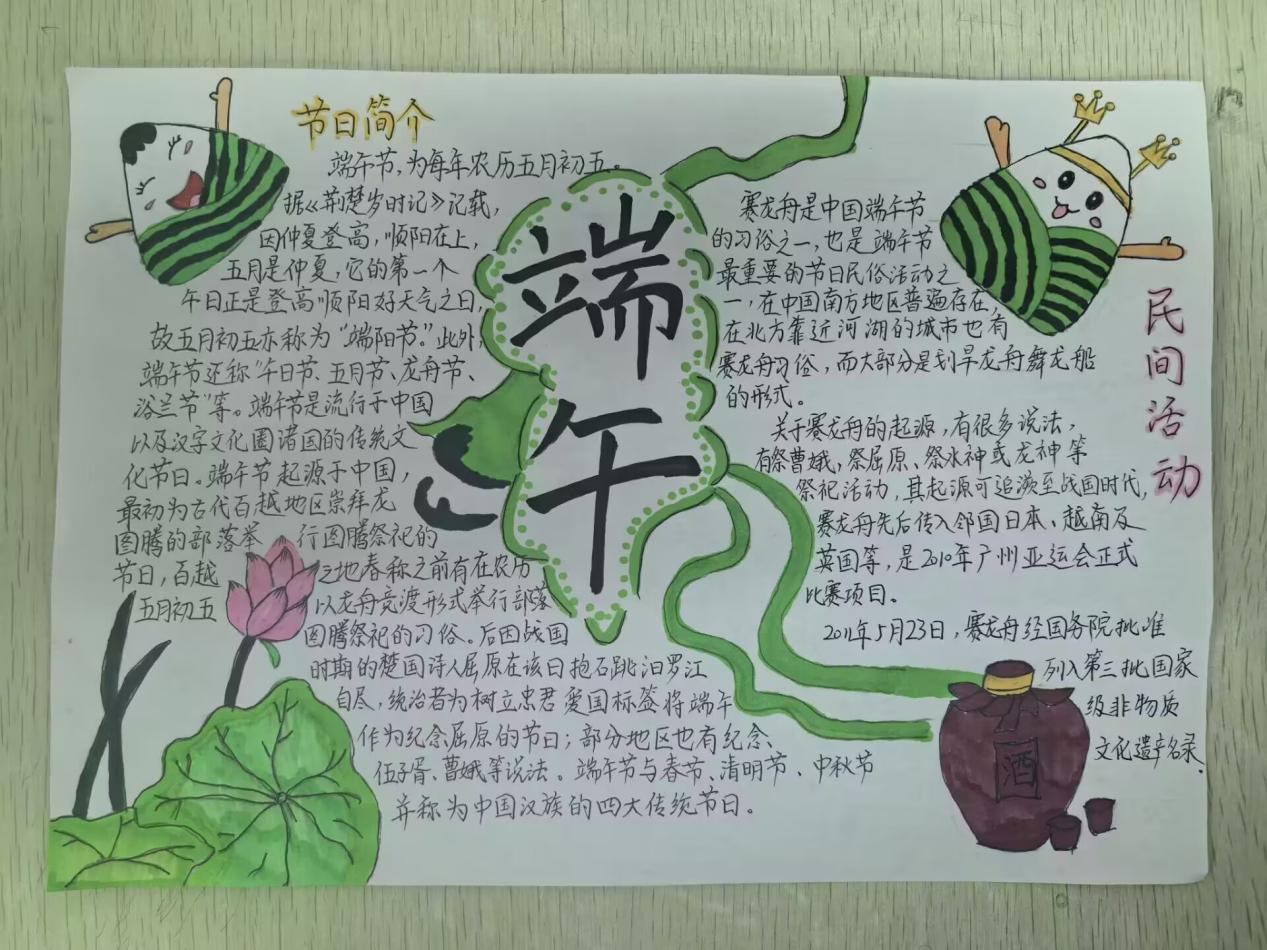 节日简介
端午节，为每年农历五月初五。
据《荆楚岁时记》记载，
因仲夏登高，顺阳在上，
五月是仲夏，它的第一个
午日正是登高顺阳好天气之日，
故五月初五亦称为“端阳节”。此外，
端午节还称“午日节、五月节、龙舟节、
浴兰节”等。端午节是流行于中国
以及汉字文化圈诸国的传统文
化节日。端午节起源于中国，
最初为古代百越地区崇拜龙
图腾的部落举 行图腾祭祀的
节日，百越 之地春称之前有在农历
五月初五 以龙舟竞渡形式举行部落
图腾祭祀的习俗。后因战国
时期的楚国诗人屈原在该日抱石跳汨罗江
自尽，统治者为树立忠君爱国标签将端午
作为纪念屈原的节日；部分地区也有纪念、
伍子胥、曹娥等说法。端午节与春节、清明节、中秋节
并称为中国汉族的四大传统节日。
端
午
赛龙舟是中国端午节
的习俗之一，也是端午节
最重要的节日民俗活动之
一，在中国南方地区普遍存在，
在北方靠近河湖的城市也有
赛龙舟习俗，而大部分是划旱龙舟舞龙船
的形式。
关于赛龙舟的起源，有很多说法，
有祭曹娥、祭屈原、祭水神或龙神等
祭祀活动，其起源可追溯至战国时代，
赛龙舟先后传入邻国日本、越南及
英国等，是2010年广州亚运会正式
比赛项目。
2011年5月23日，赛龙舟经国务院批准
列入第三批国家
级非物质
文化遗产名录。
民
间
活
动
酒